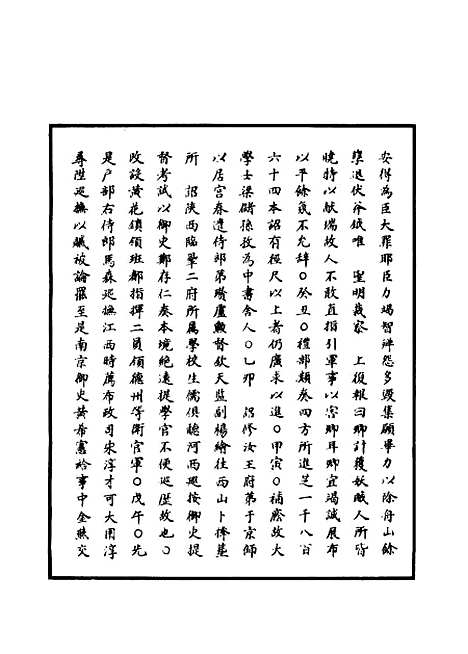 安得為臣大罪耶臣力竭智殫怨多毀集願畢力以除舟山餘
孽退伏斧鉞唯　聖明裁察　上優報曰卿計獲妖賊人所皆
曉特以獻瑞故人不敢直指引軍事以害卿耳卿宜竭誠展布
以平餘氛不允辭○癸丑○禮部類奏四方所進芝一千八百
六十四本詔有徑尺以上者仍廣求以進○甲寅○補廕故大
學士梁儲孫孜為中書舍人○乙卯　詔修汝王府第于京師
以居宮眷遣侍郎第賜盧勳督欽天監副楊繪往西山卜擇塋
所　詔陝西臨鞏二府所屬學校生儒俱聽河西巡按御史提
督考試以御史鄭存仁奏本境絕遠提學官不便巡歷故也○
改設黃花鎮領班都指揮二員領德州等衛官軍○戊午○先
是戶部右侍郎馬森巡撫江西時薦布政司宋淳才可大用淳
尋陞巡撫以贓被論罷至是南京御史黃希憲給事中金燕交